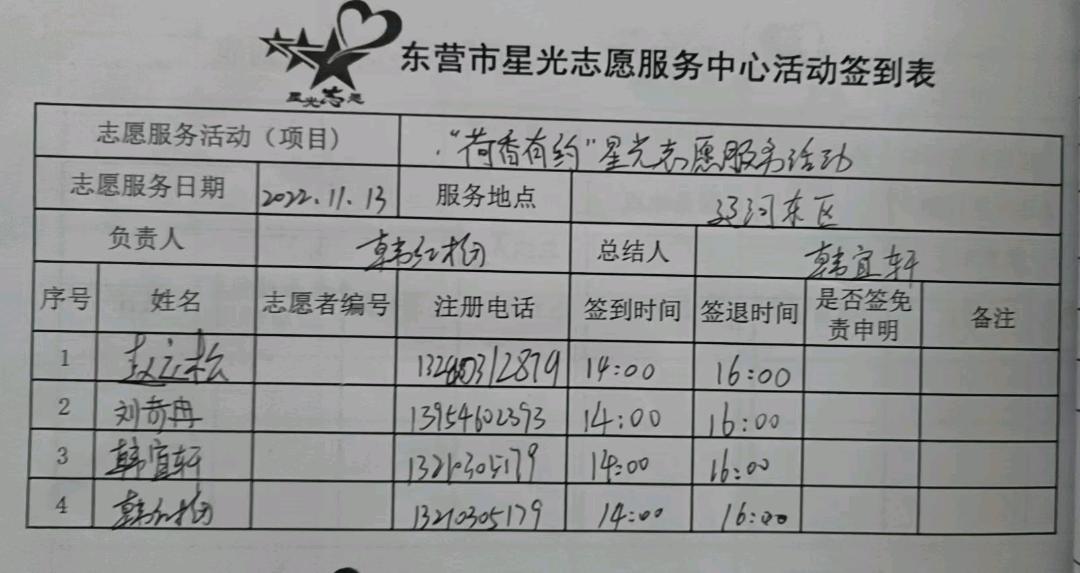 星光志愿
东营市星光志愿服务中心活动签到表
志愿服务活动（项目） “荷香有约”星光志愿服务活动
志愿服务日期 2022.11.13 服务地点 辽河东区
负责人 韩红 总结人 韩宜轩
序号 姓名 志愿者编号 注册电话 签到时间 签退时间 是否签免责申明 备注
1 赵 松 14:00 16:00
2 刘奇冉 13954602393 14:00 16:00
3 韩宜轩 13210305179 14:00 16:00
4 韩红 13210305179 14:00 16:00